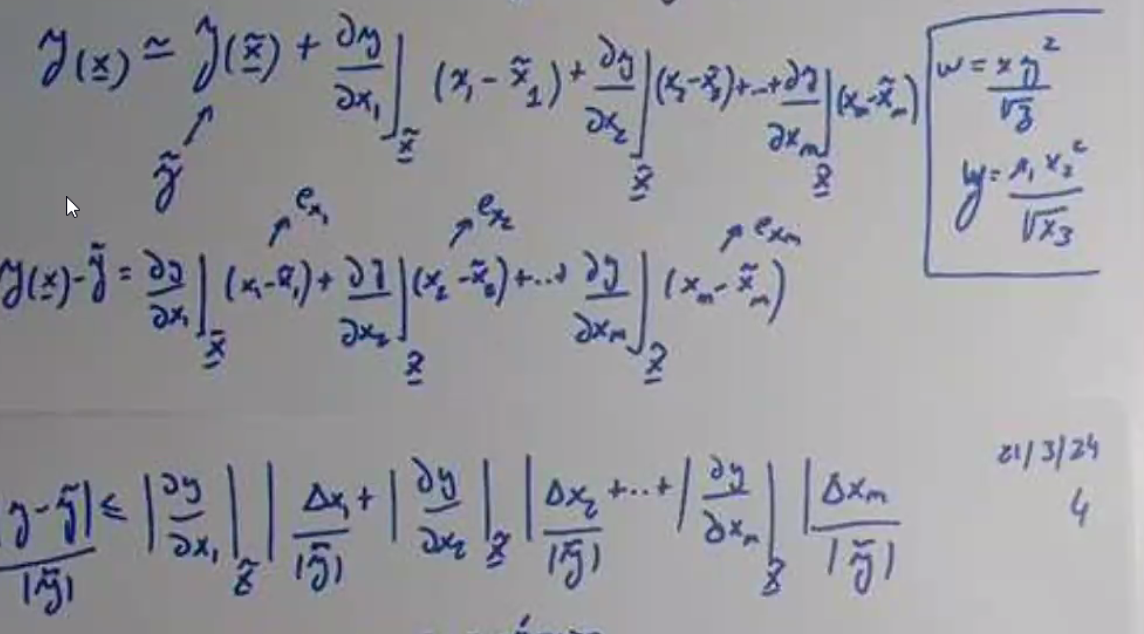 y(x) ≃ y(x̃) + ∂y/∂x₁|x̃ (x₁ - x̃₁) + ∂y/∂x₂|x̃ (x₂ - x̃₂) + ... + ∂y/∂xₘ|x̃ (xₘ - x̃ₘ)
ỹ
w = x y²/√z
y = x₁ x₂²/√x₃
eₓ₁ eₓ₂ eₓₘ
y(x) - ỹ = ∂y/∂x₁|x̃ (x₁ - x̃₁) + ∂y/∂x₂|x̃ (x₂ - x̃₂) + ... + ∂y/∂xₘ|x̃ (xₘ - x̃ₘ)
21/3/24
4
|y - ỹ|/|ỹ| ≤ |∂y/∂x₁|x̃| Δx₁/|ỹ| + |∂y/∂x₂|x̃| Δx₂/|ỹ| + ... + |∂y/∂xₘ|x̃| Δxₘ/|ỹ|